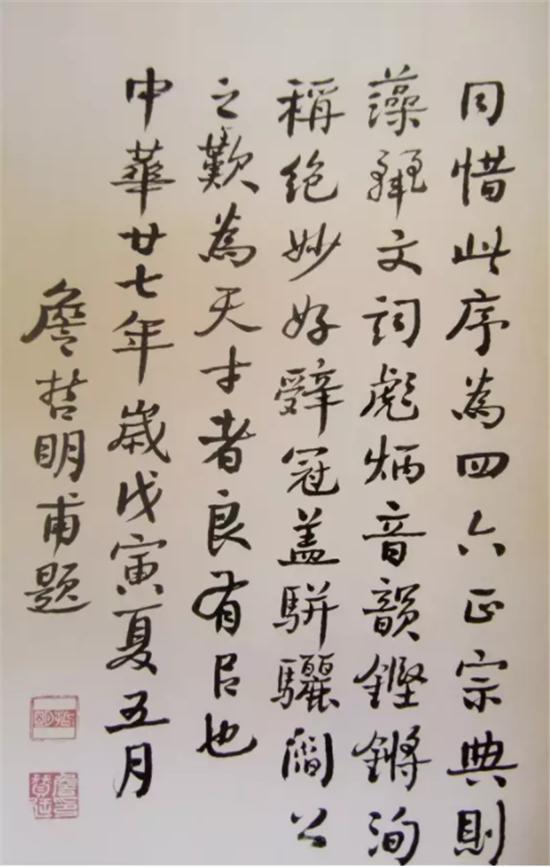 同惜此序為四六正宗典則
藻文詞彪炳音韻鏗鏘洵
稱絕妙好辭冠盖駢驪閻公
之歎為天才者良有㠯也
中華廿七年歲戊寅夏五月
詹哲明甫題